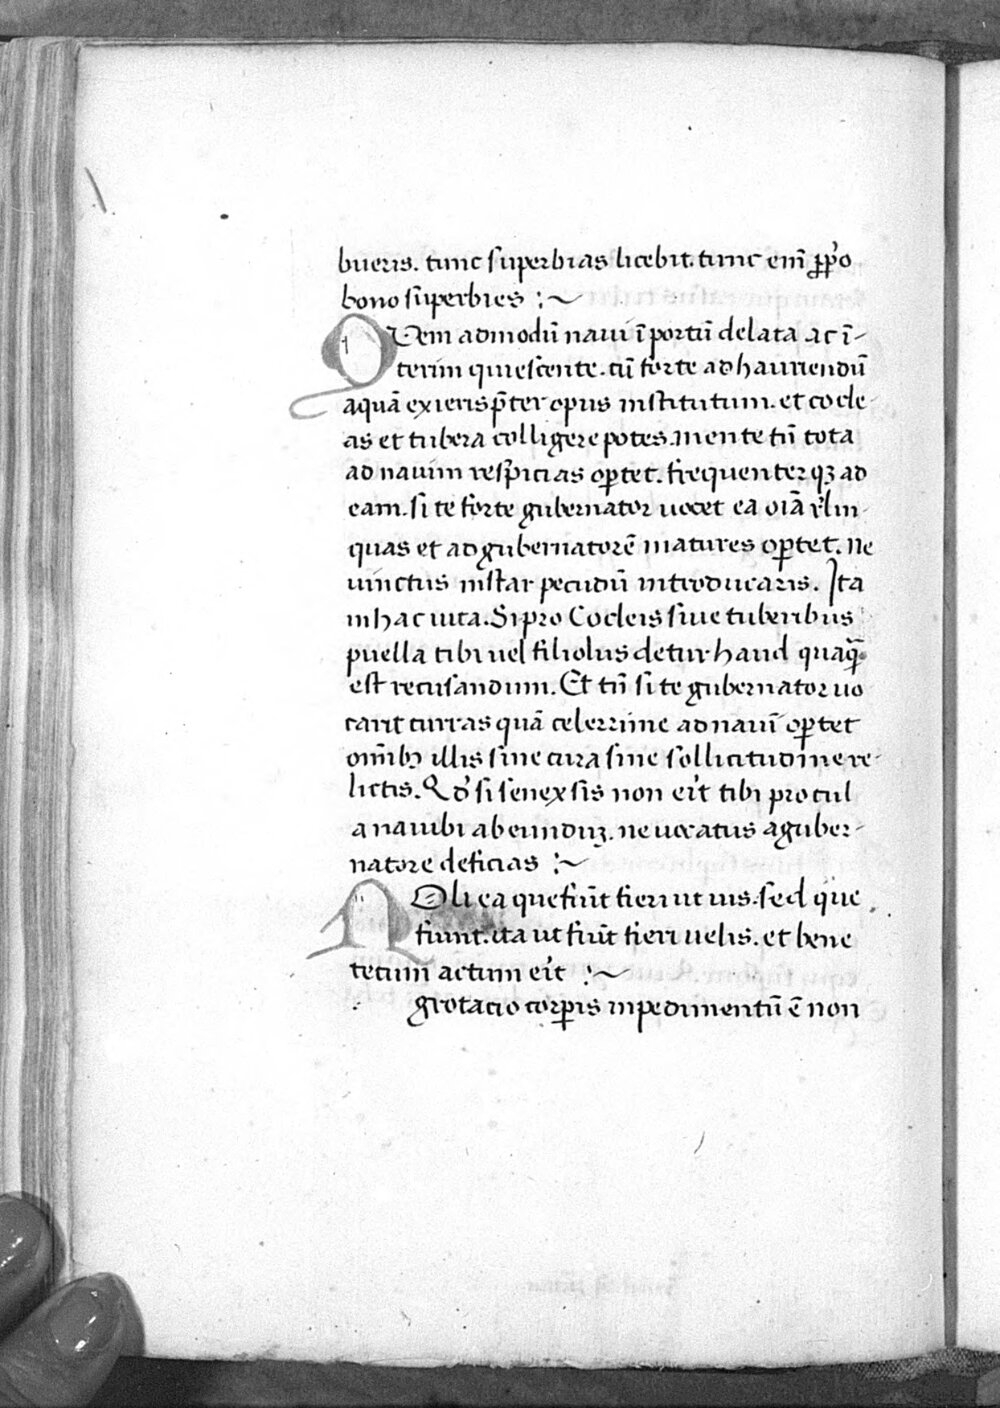 bueris. tunc superbias licebit. tunc eni᷑ ꝓprͦo
bono superbies :~
Quem admodū naui ī portū delata ac ī-
terim quiescente. cū forte ad hauriendū
aquā exieris p̄ter opus institutum. et cocle-
as et tubera colligere potes. mente tn̄ tota
ad nauim respicias oꝑtet. frequenter qꝫ ad
eam. si te forte gubernator uocet ea oīā rl̄in-
quas et ad gubernatorē matures oꝑtet. Ne
uinctus instar pecudū introducaris. Ita
in hac uita. Si pro Cocleis siue tuberibus
puella tibi uel filiolus detur haud quaꝙ̄
est recusandum. Et tn̄ si te gubernator uo
carit curras quā celerrime ad nauī oꝑtet
omībꝫ illis sine cura sine sollicitudine re-
lictis. Qd̓ si senex sis non erit tibi procul
a naui abeundūꝫ. ne uocatus a guber-
natore deficias :~
Noli ea que fiūt fieri ut uis. sed que
fiunt. ita ut fiūt fieri uelis. et bene
tecum actum erit :~
grotacio corꝑis inpedimentū ē non